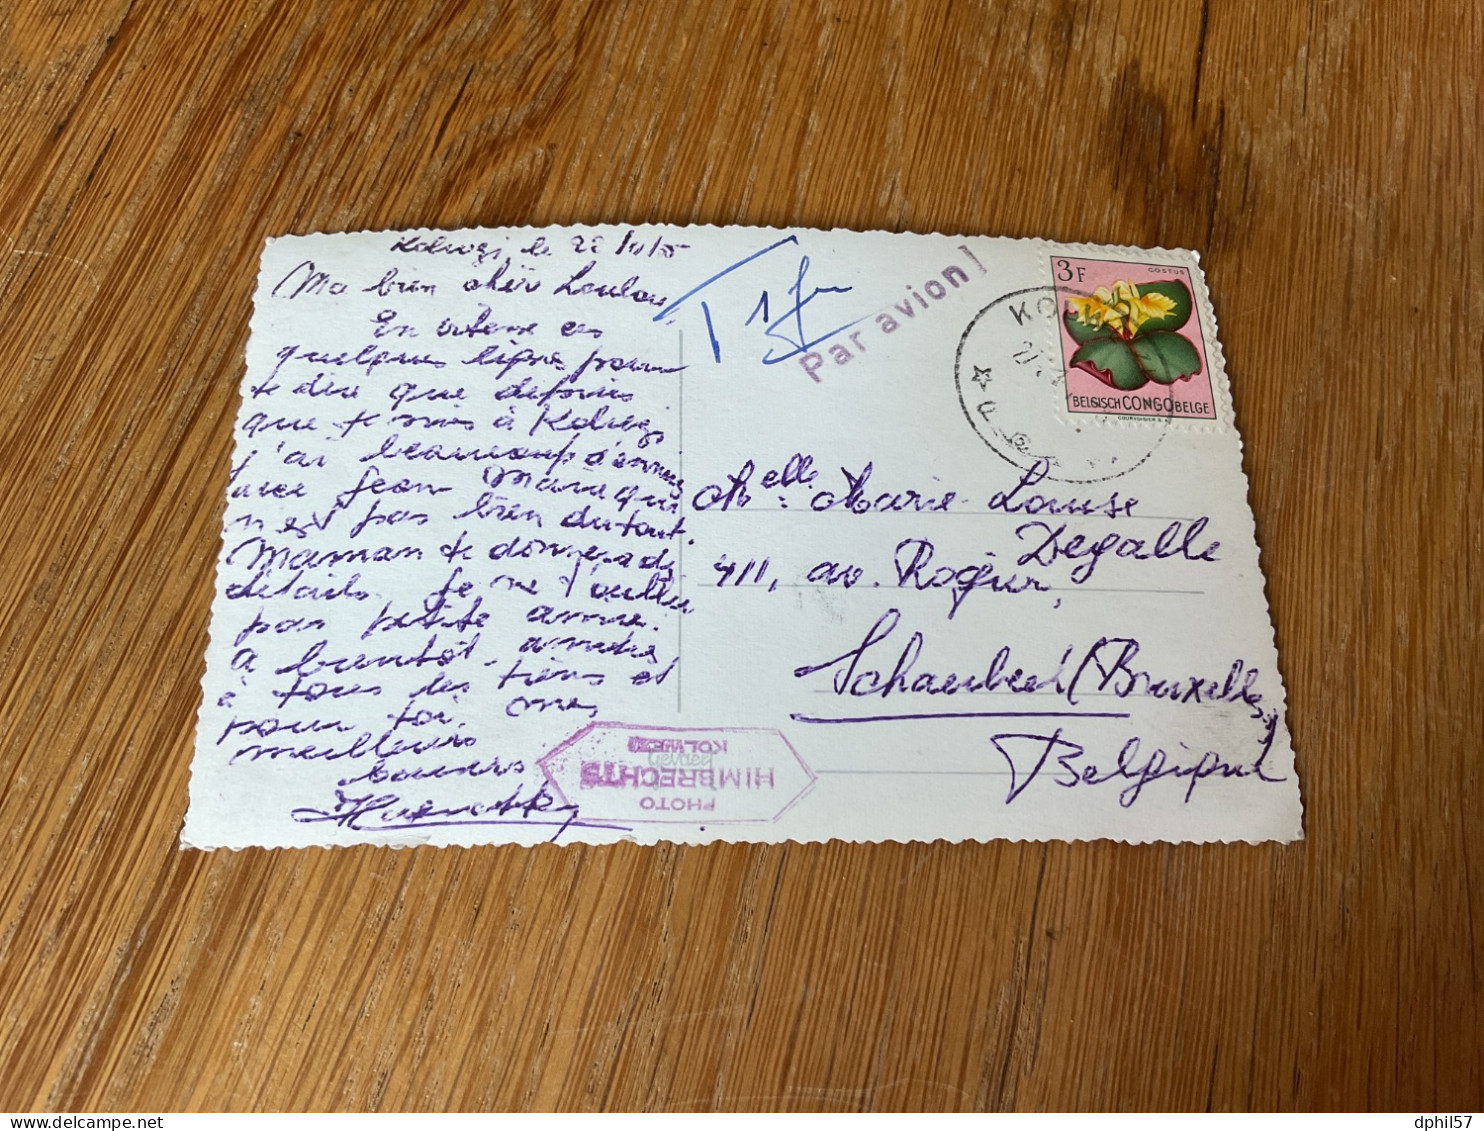 Kolwezi, le 22/11/5
Ma bien chère Loulou,
En vitesse ces
quelques lignes pour
te dire que depuis
que je suis à Kolwezi
j'ai beaucoup d'ennuis
avec Jean Marie qui
n'est pas bien du tout.
Maman te donnera des
détails. Je ne t'oublie
pas petite amie.
à bientôt. amitiés
à tous les tiens et
pour toi. mes
meilleurs
baisers
T 1 fr
Par avion
3F
COSTUS
BELGISCH CONGO BELGE
COURVOISIER S.A.
KOLWEZI
Melle: Marie-Louise
Degalle
411, av. Rogier,
Schaerbeek (Bruxelles)
Belgique
PHOTO
HIMBRECHTS
KOLWEZI
dphil57